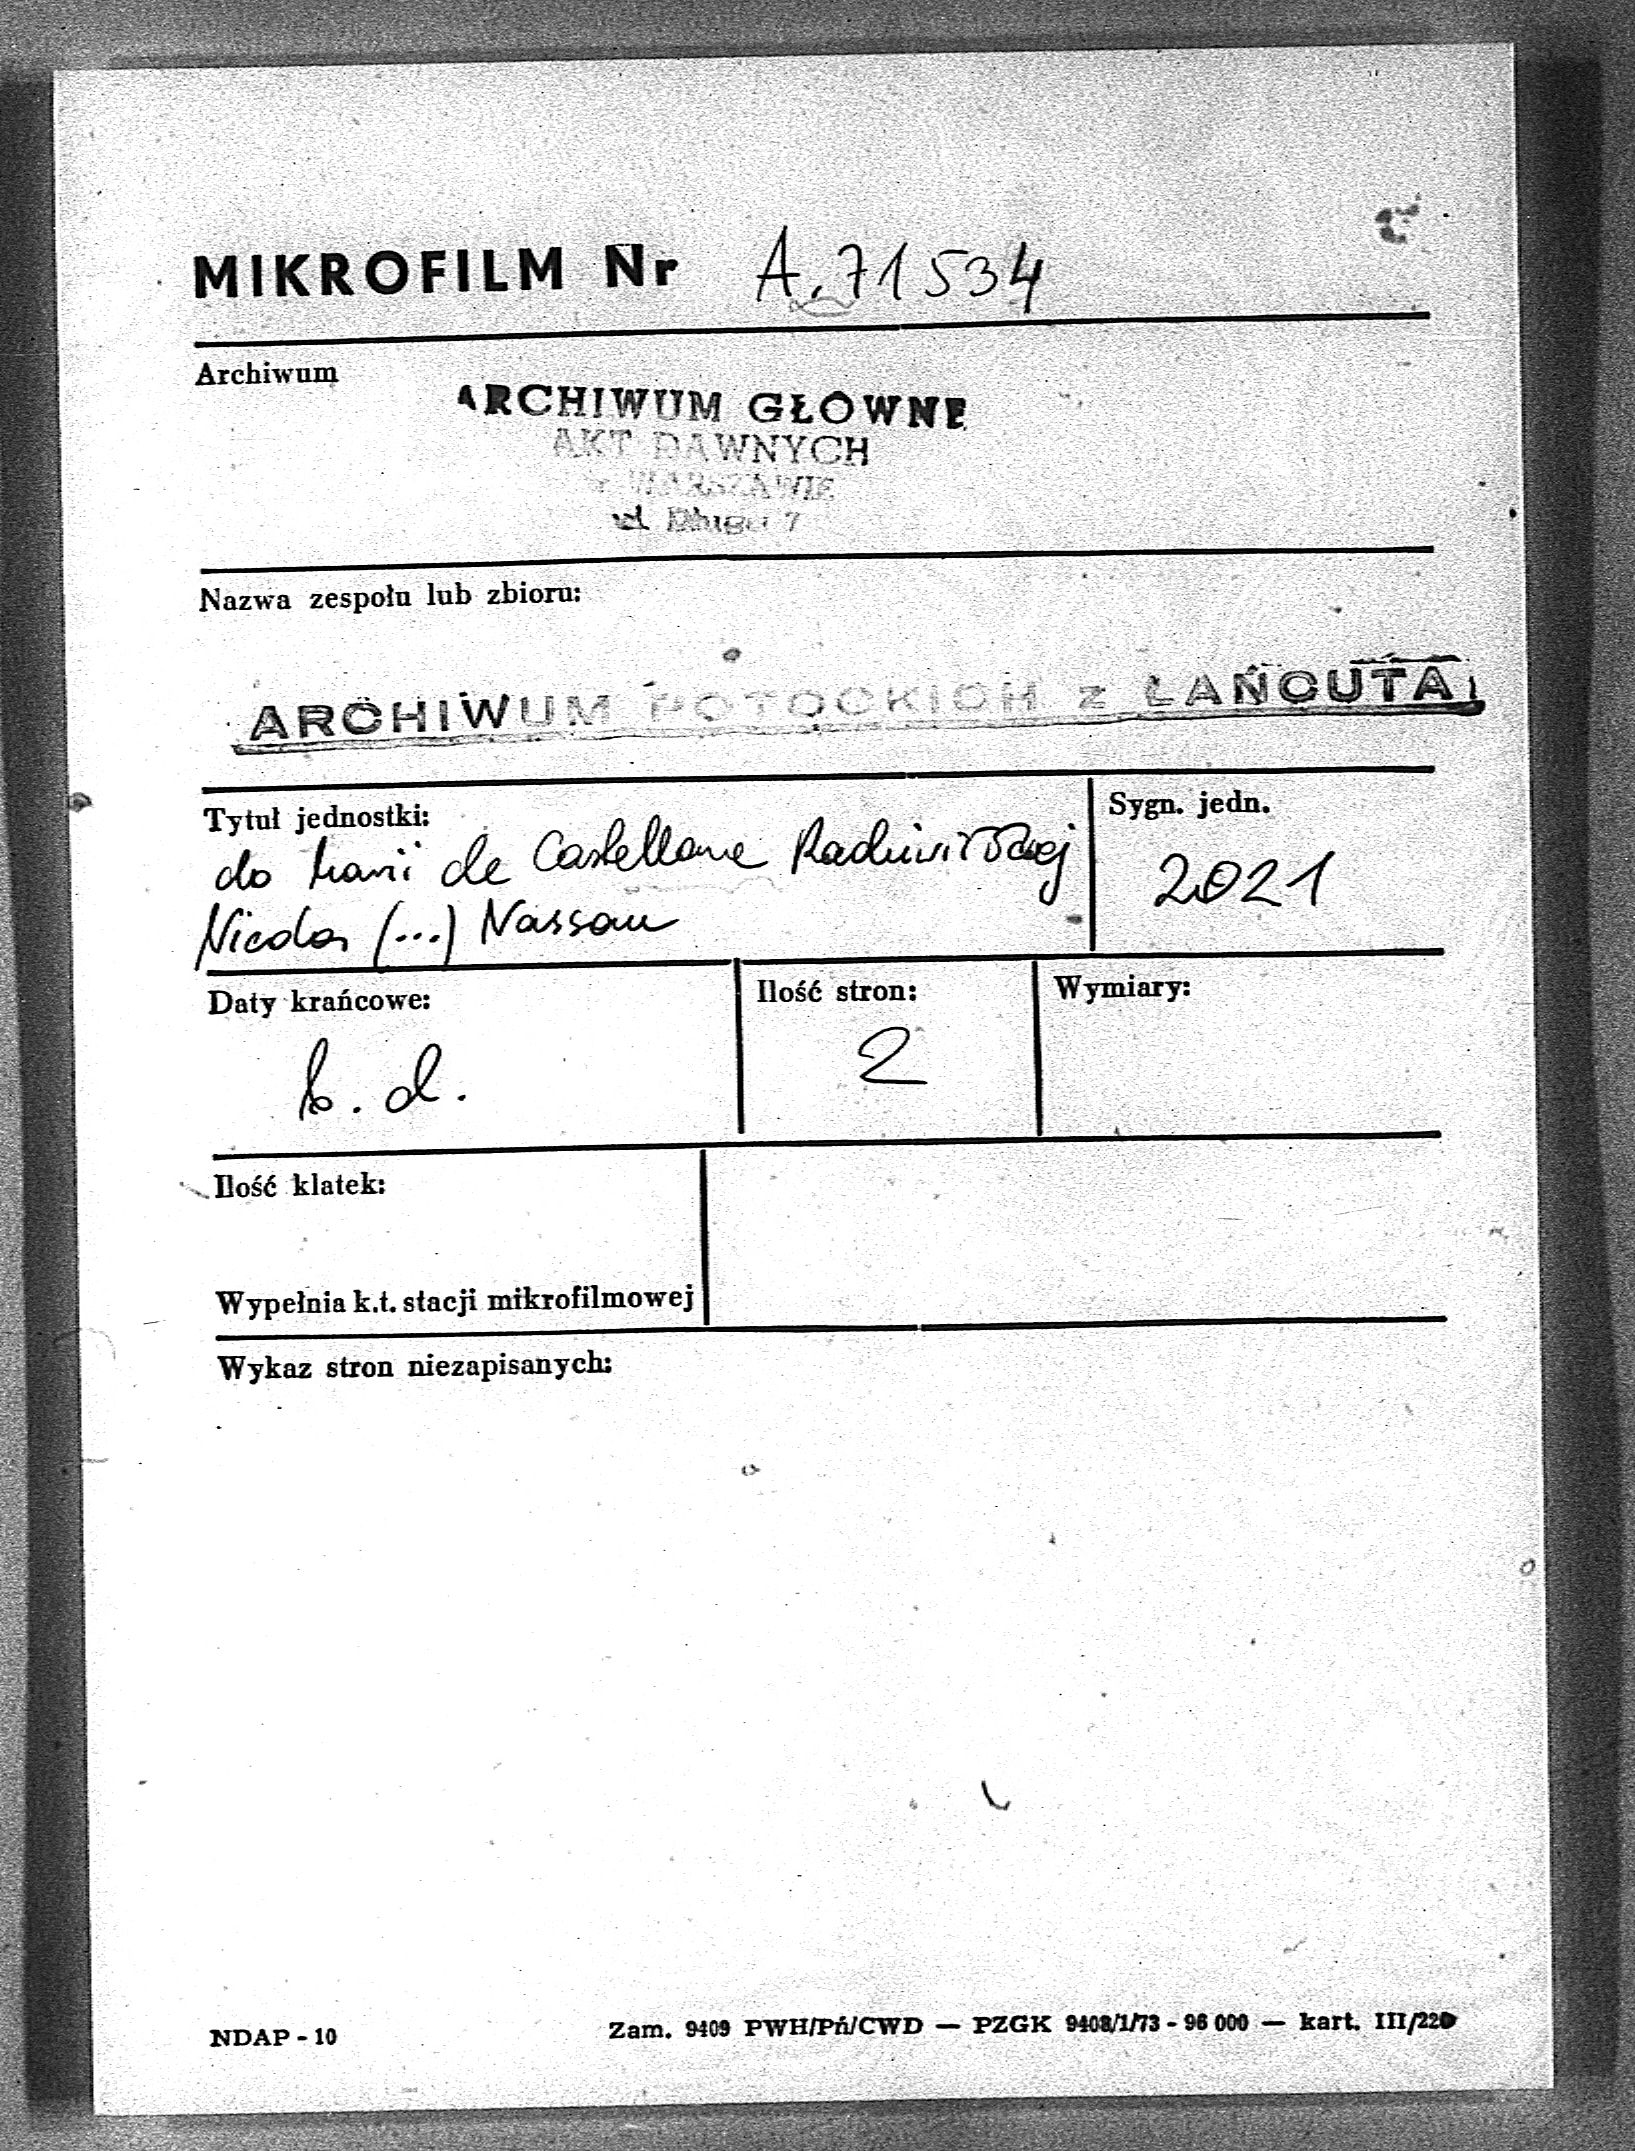 MIKROFILM Nr A.71534
Archiwum
ARCHIWUM GŁÓWNE
AKT DAWNYCH
WARSZAWIE
ul Długa 7
Nazwa zespołu lub zbioru:
ARCHIWUM POTOCKICH z ŁAŃCUTA
Tytuł jednostki:
Sygn. jedn.
do Marii de Castellane Radziwiłłowej
2021
Nicolas (...) Nassau
Daty krańcowe:
Ilość stron:
Wymiary:
b.d.
2
Ilość klatek:
Wypełnia k.t. stacji mikrofilmowej
Wykaz stron niezapisanych:
NDAP - 10
Zam. 9409 PWH/Pń/CWD — PZGK 9408/1/73 - 96 000 — kart. III/220